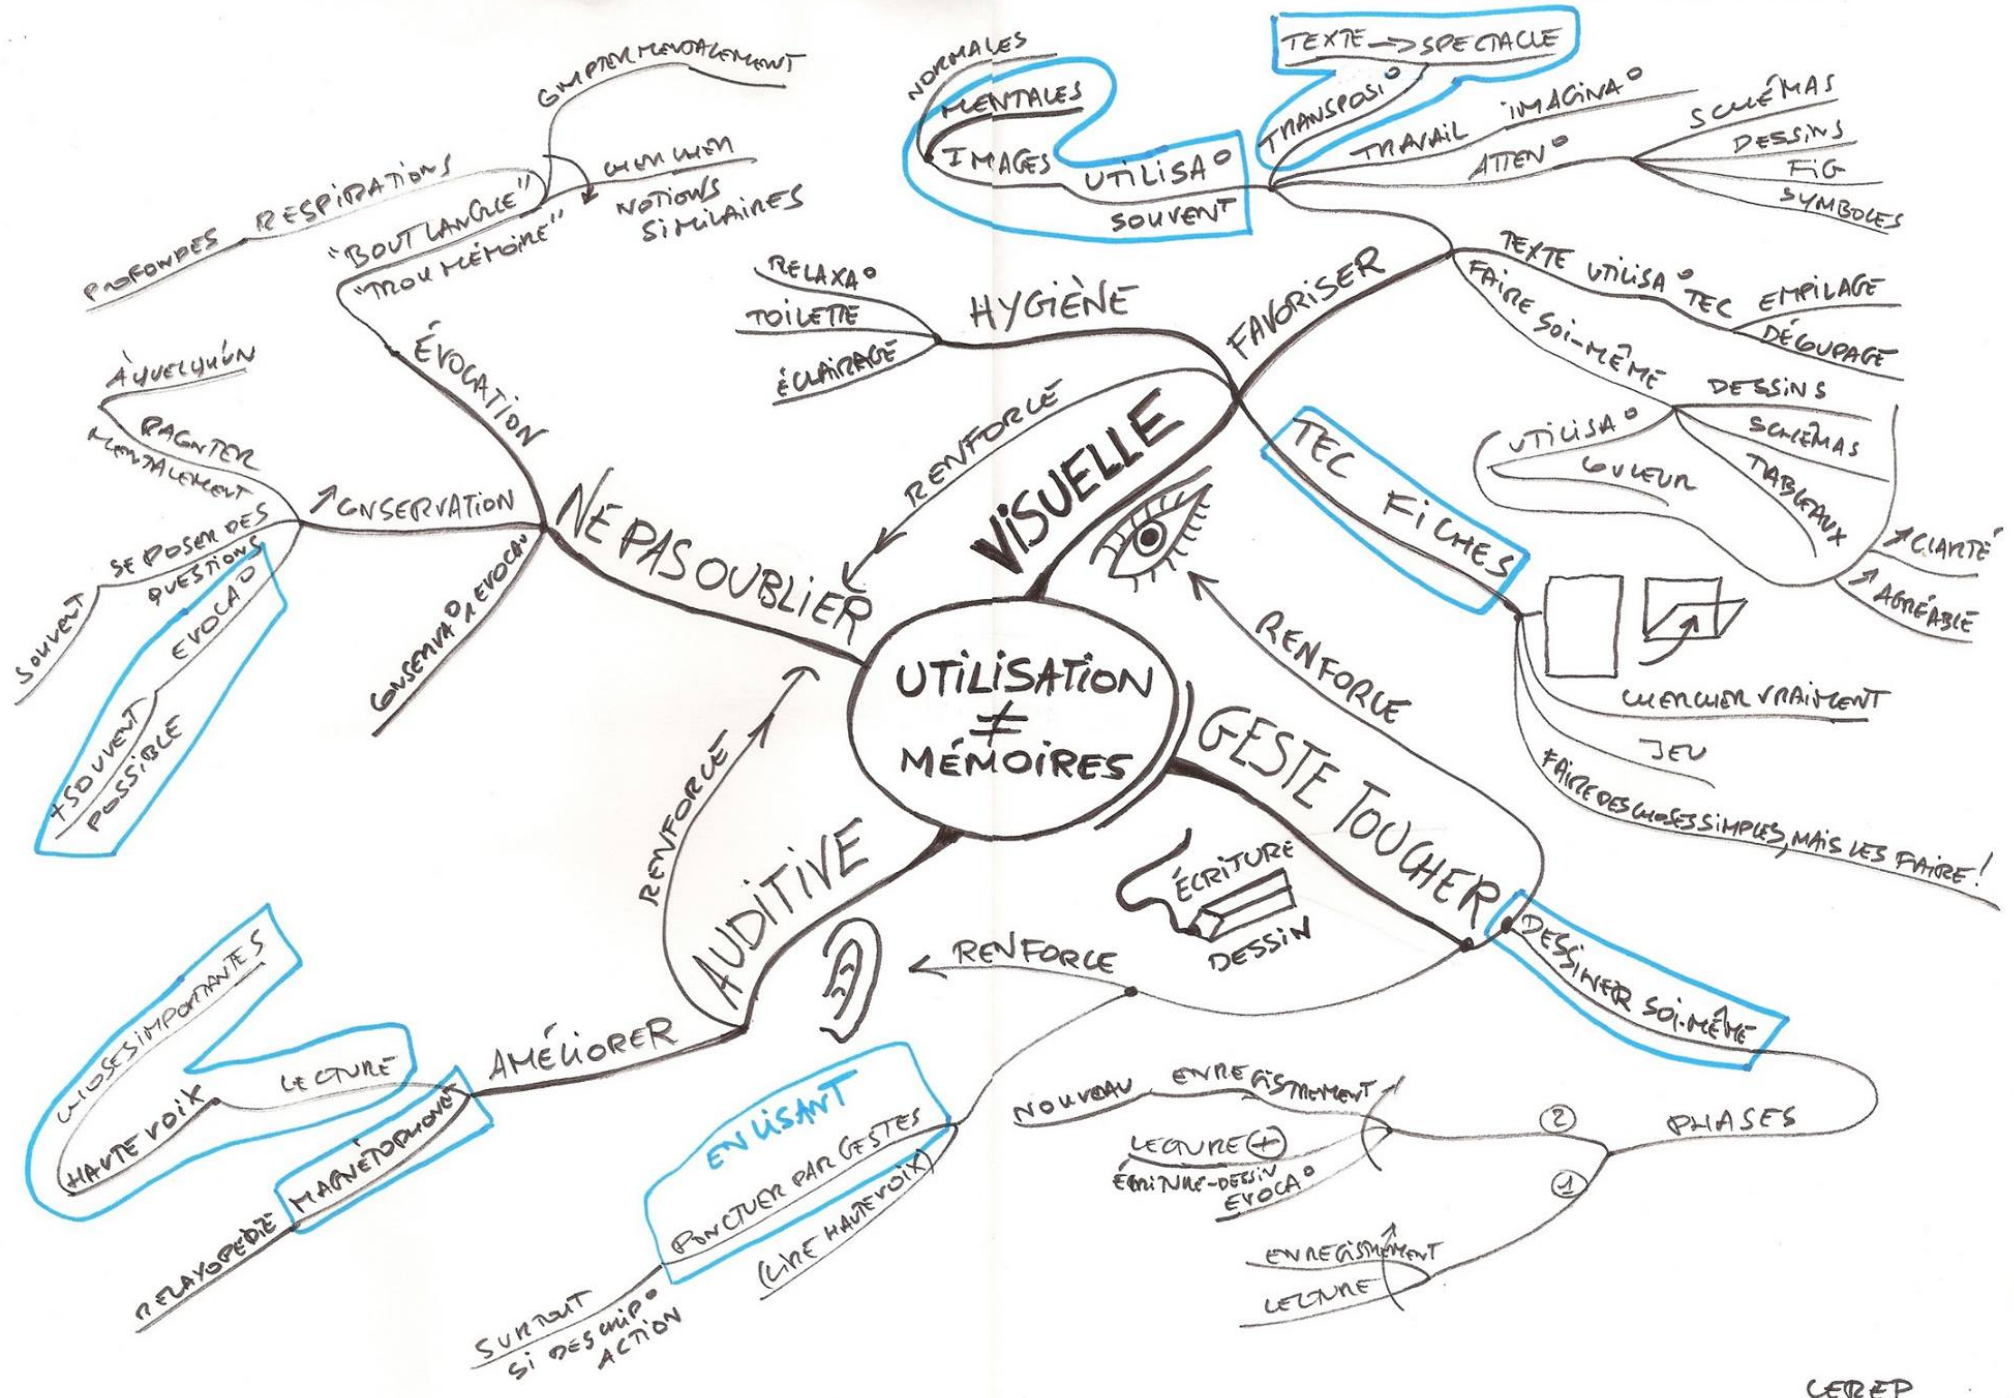 UTILISATION
≠
MÉMOIRES
VISUELLE
RENFORCE
HYGIÈNE
RELAXA°
TOILETTE
ÉCLAIRAGE
FAVORISER
NORMALES
MENTALES
IMAGES
UTILISA°
SOUVENT
TEXTE → SPECTACLE
TRANSPOSI°
TRAVAIL
IMAGINA°
ATTEN°
SCHÉMAS
DESSINS
FIG
SYMBOLES
TEXTE UTILISA° TEC
EMPILAGE
DÉCOUPAGE
FAIRE SOI-MÊME
DESSINS
SCHÉMAS
TABLEAUX
UTILISA°
COULEUR
↗ CLARTÉ
↗ AGRÉABLE
TEC FICHES
CHERCHER VRAIMENT
JEU
FAIRE DES CHOSES SIMPLES, MAIS LES FAIRE !
GESTE TOUCHER
RENFORCE
ÉCRITURE
DESSIN
DESSINER SOI-MÊME
PHASES
②
NOUVEAU
ENREGISTREMENT
LECTURE (+)
ÉCRITURE-DESSIN
EVOCA°
①
ENREGISTREMENT
LECTURE
RENFORCE
EN LISANT
PONCTUER PAR GESTES
(LIRE HAUTE VOIX)
SURTOUT
SI DESCRIP°
ACTION
AUDITIVE
RENFORCE
AMÉLIORER
LECTURE
HAUTE VOIX
CHOSES IMPORTANTES
MAGNÉTOPHONE
NE PAS OUBLIER
ÉVOCATION
"BOUT LANGUE"
"TROU MÉMOIRE"
RESPIRATIONS
PROFONDES
COMPTER MENTALEMENT
CHERCHER
NOTIONS
SIMILAIRES
↗ CONSERVATION
RACONTER
MENTALEMENT
À QUELQU'UN
SE POSER DES
QUESTIONS
SOUVENT
EVOCA°
+ SOUVENT
POSSIBLE
CONSERVA°
CEREP